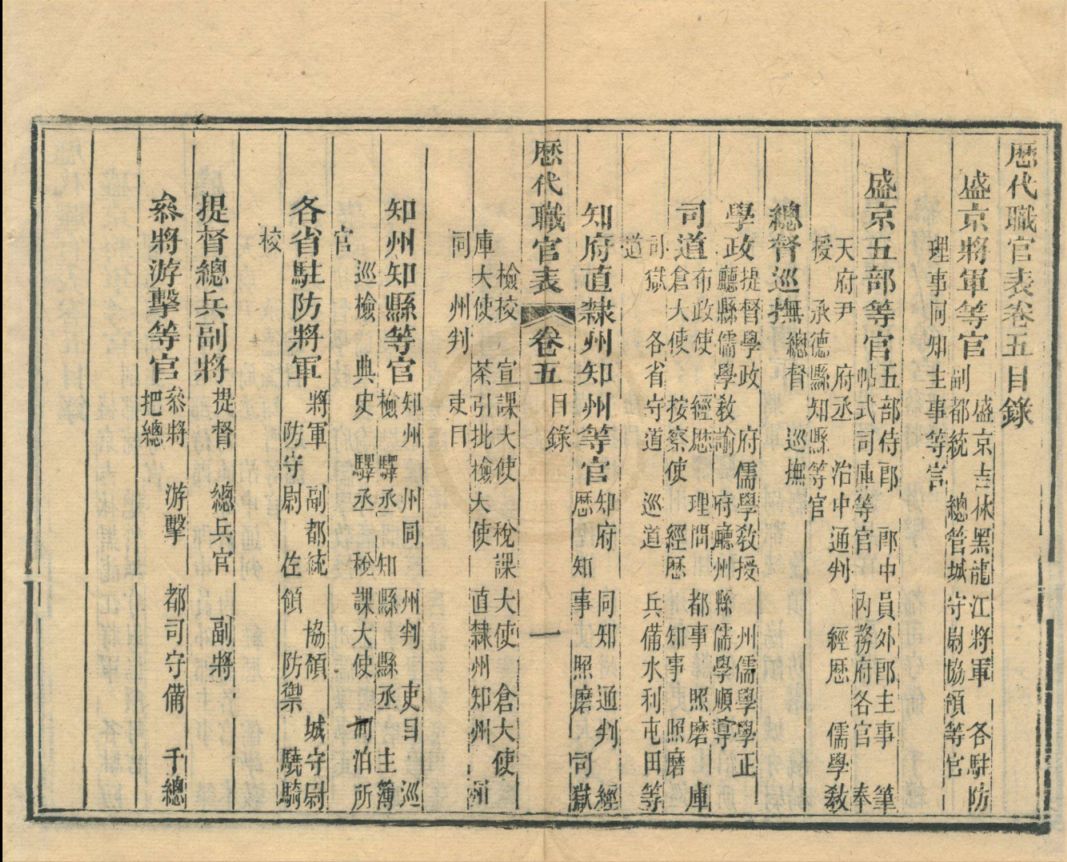 厯代職官表卷五目錄
盛京將軍等官
盛京吉林黑龍江將軍 各駐防
副都統 總管城守尉協領等官
理事同知主事等官
盛京五部等官
五部侍郎 郎中員外郎主事 筆
帖式司庫等官 內務府各官 奉
天府尹 府丞 治中通判 經厯 儒學敎
授 承德縣知縣等官
總督巡撫
總督 巡撫
學政
提督學政 府儒學敎授 州儒學學正
廳縣儒學敎諭 府廳州縣儒學順導
司道
布政使 經厯 理問 都事 照磨 庫
倉大使 按察使 經厯 知事 照磨
司獄 各省守道 巡道 兵備水利屯田等
道
知府直隸州知州等官
知府 同知 通判 經
厯 知事 照磨 司獄
厯代職官表 卷五 目錄 一
檢校 宣課大使 稅課大使 倉大使
庫大使 茶引批檢大使 直隸州知州 州
同 州判 吏目
知州知縣等官
知州 州同 州判 吏目 巡
檢 驛丞 知縣 縣丞 主簿
巡檢 典史 驛丞 稅課大使 河泊所
官
各省駐防將軍
將軍 副都統 協領 城守尉
防守尉 佐領 防禦 驍騎
校
提督總兵副將
提督 總兵官 副將
叅將游擊等官
叅將 游擊 都司守備 千總
把總